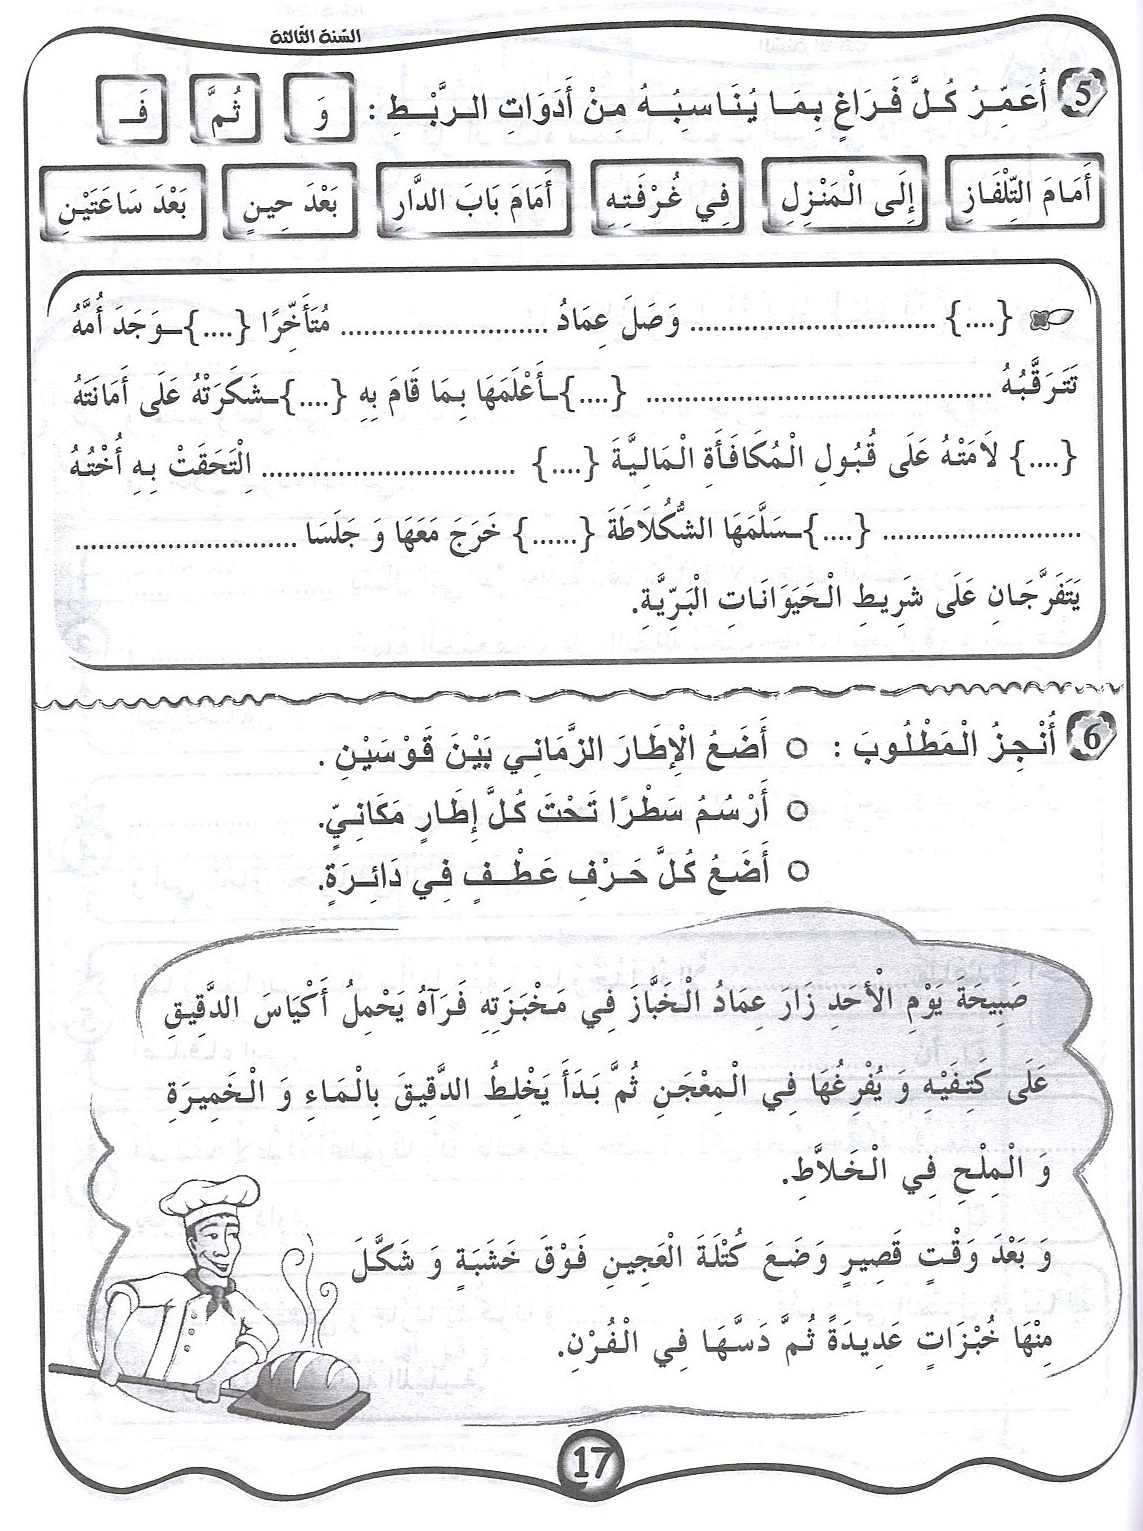 السّنة الثّالثة
5 أُعَمِّرُ كُلَّ فَرَاغٍ بِمَا يُنَاسِبُهُ مِنْ أَدَوَاتِ الرَّبْطِ : وَ ثُمَّ فَـ
أَمَامَ التِّلْفَازِ إِلَى الْمَنْزِلِ فِي غُرْفَتِهِ أَمَامَ بَابَ الدَّارِ بَعْدَ حِينٍ بَعْدَ سَاعَتَيْنِ
{....} ................................ وَصَلَ عِمَادُ ........................... مُتَأَخِّرًا {....}ـوَجَدَ أُمَّهُ
تَتَرَقَّبُهُ ............................................. {....}ـأَعْلَمَهَا بِمَا قَامَ بِهِ {....}ـشَكَرَتْهُ عَلَى أَمَانَتَهُ
{....} لَامَتْهُ عَلَى قُبُولِ الْمُكَافَأَةِ الْمَالِيَّةَ {....} ................................. اِلْتَحَقَتْ بِهِ أُخْتُهُ
.......................... {....}ـسَلَّمَهَا الشُّكُلَاطَةَ {......} خَرَجَ مَعَهَا وَ جَلَسَا .............................
يَتَفَرَّجَانِ عَلَى شَرِيطِ الْحَيَوَانَاتِ الْبَرِّيَّةِ.
6 أُنْجِزُ الْمَطْلُوبَ : ○ أَضَعُ الْإِطَارَ الزَّمَانِي بَيْنَ قَوْسَيْنِ .
○ أَرْسُمُ سَطْرًا تَحْتَ كُلَّ إِطَارٍ مَكَانِيّ.
○ أَضَعُ كُلَّ حَرْفِ عَطْفٍ فِي دَائِرَةٍ.
صَبِيحَةَ يَوْمِ الْأَحَدِ زَارَ عِمَادُ الْخَبَّازَ فِي مَخْبَزَتِهِ فَرَآهُ يَحْمِلُ أَكْيَاسَ الدَّقِيقِ
عَلَى كَتِفَيْهِ وَ يُفْرِغُهَا فِي الْمِعْجَنِ ثُمَّ بَدَأَ يَخْلِطُ الدَّقِيقَ بِالْمَاءِ وَ الْخَمِيرَةِ
وَ الْمِلْحِ فِي الْخَلاَّطِ.
وَ بَعْدَ وَقْتٍ قَصِيرٍ وَضَعَ كُتْلَةَ الْعَجِينِ فَوْقَ خَشَبَةٍ وَ شَكَّلَ
مِنْهَا خُبْزَاتٍ عَدِيدَةً ثُمَّ دَسَّهَا فِي الْفُرْنِ.
17